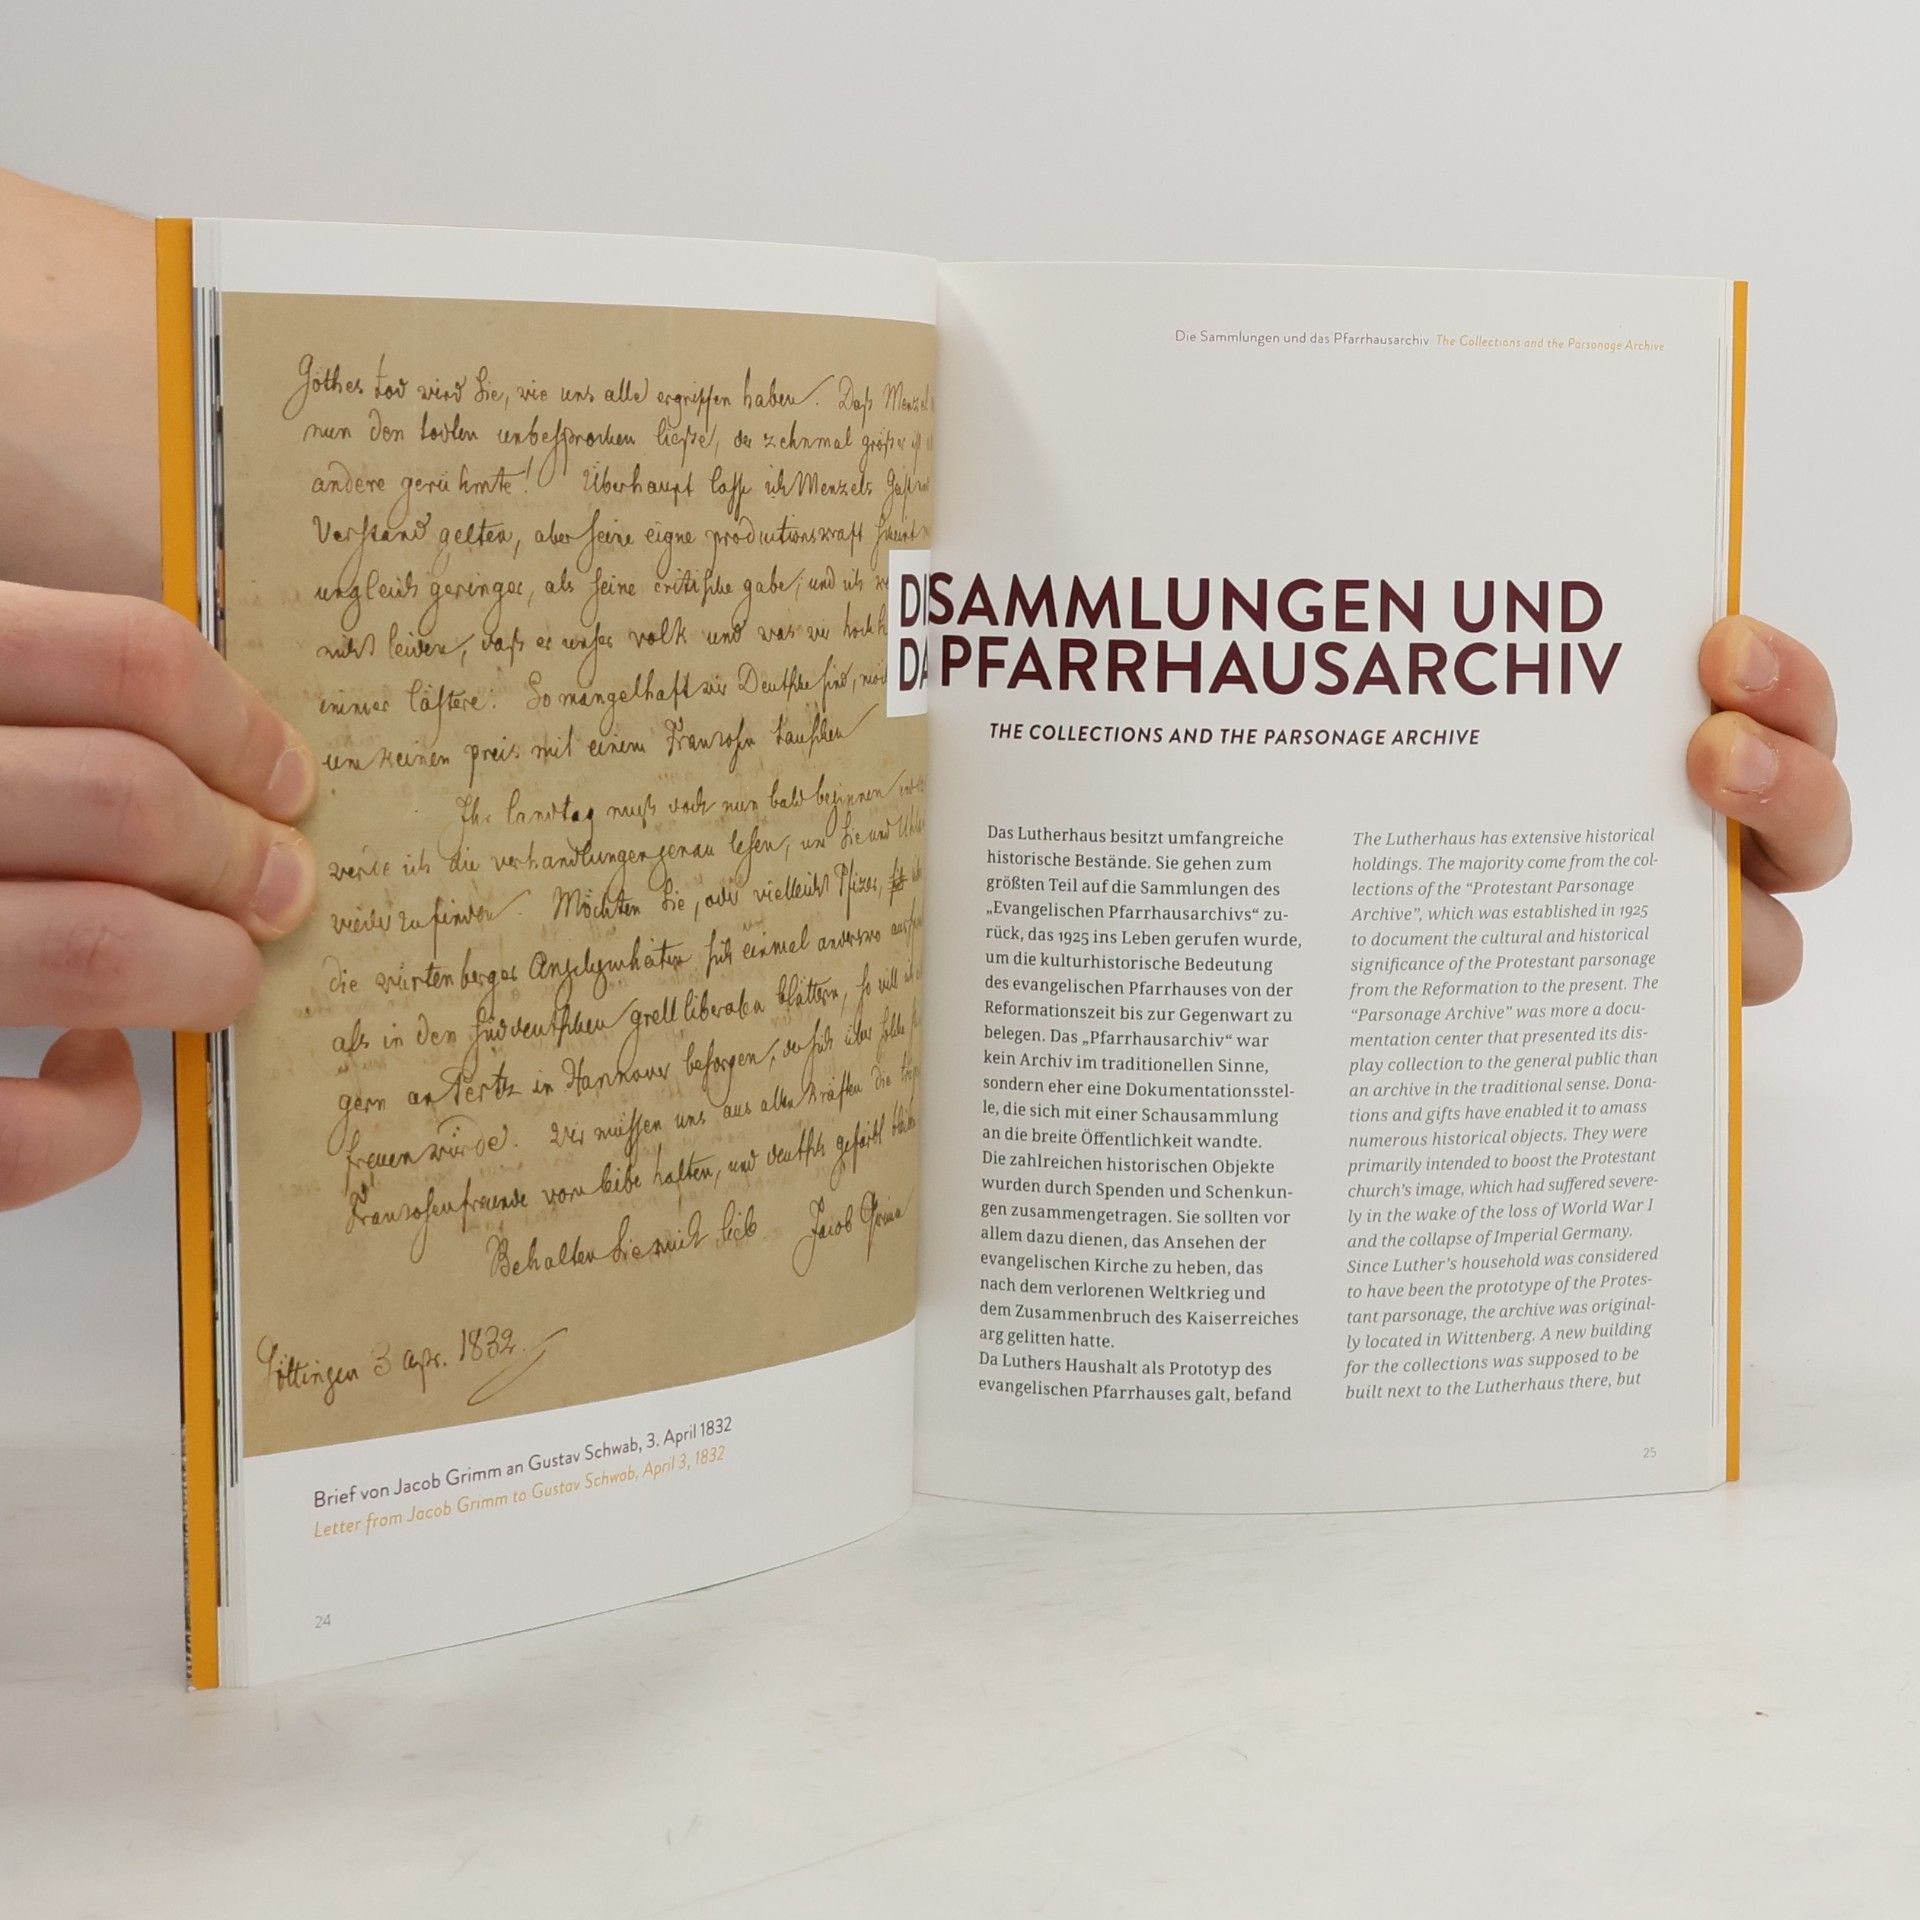 Göthes tod wird Sie, wie uns alle ergriffen haben. Daß Menzel
nun den todten unbesprochen ließe, der zehnmal größer ist
andere gerühmte! Überhaupt lasse ich Menzels Geist und
Verstand gelten, aber seine eigne productionskraft scheint
ungleich geringer, als seine critische gabe; und ich
nicht leiden, daß er unser volk und was wir hoch
immer lästere. So mangelhaft wir Deutsche sind,
um keinen preis mit einem Franzosen tauschen
Ihr landtag muß doch nun bald beginnen
werde ich die verhandlungen genau lesen, um Sie und
wieder zu finden. Möchten Sie, oder vielleicht Pfizer,
die würtenberger Angelegenheiten sich einmal anderswo
als in den süddeutschen grell liberalen blättern, so will ich
gern an Pertz in Hannover besorgen, der sich über solche
freuen würde. Wir müssen uns aus allen kräften die
Franzosenfreunde vom leibe halten, und deutsch gefärbt
Behalten Sie mich lieb. Jacob Grimm
Göttingen 3 apr. 1832.
Brief von Jacob Grimm an Gustav Schwab, 3. April 1832
Letter from Jacob Grimm to Gustav Schwab, April 3, 1832
24
Die Sammlungen und das Pfarrhausarchiv The Collections and the Parsonage Archive
DI SAMMLUNGEN UND
DA PFARRHAUSARCHIV
THE COLLECTIONS AND THE PARSONAGE ARCHIVE
Das Lutherhaus besitzt umfangreiche
historische Bestände. Sie gehen zum
größten Teil auf die Sammlungen des
„Evangelischen Pfarrhausarchivs“ zu-
rück, das 1925 ins Leben gerufen wurde,
um die kulturhistorische Bedeutung
des evangelischen Pfarrhauses von der
Reformationszeit bis zur Gegenwart zu
belegen. Das „Pfarrhausarchiv“ war
kein Archiv im traditionellen Sinne,
sondern eher eine Dokumentationsstel-
le, die sich mit einer Schausammlung
an die breite Öffentlichkeit wandte.
Die zahlreichen historischen Objekte
wurden durch Spenden und Schenkun-
gen zusammengetragen. Sie sollten vor
allem dazu dienen, das Ansehen der
evangelischen Kirche zu heben, das
nach dem verlorenen Weltkrieg und
dem Zusammenbruch des Kaiserreiches
arg gelitten hatte.
Da Luthers Haushalt als Prototyp des
evangelischen Pfarrhauses galt, befand
The Lutherhaus has extensive historical
holdings. The majority come from the col-
lections of the “Protestant Parsonage
Archive”, which was established in 1925
to document the cultural and historical
significance of the Protestant parsonage
from the Reformation to the present. The
“Parsonage Archive” was more a docu-
mentation center that presented its dis-
play collection to the general public than
an archive in the traditional sense. Dona-
tions and gifts have enabled it to amass
numerous historical objects. They were
primarily intended to boost the Protestant
church’s image, which had suffered severe-
ly in the wake of the loss of World War I
and the collapse of Imperial Germany.
Since Luther’s household was considered
to have been the prototype of the Protes-
tant parsonage, the archive was original-
ly located in Wittenberg. A new building
for the collections was supposed to be
built next to the Lutherhaus there, but
25